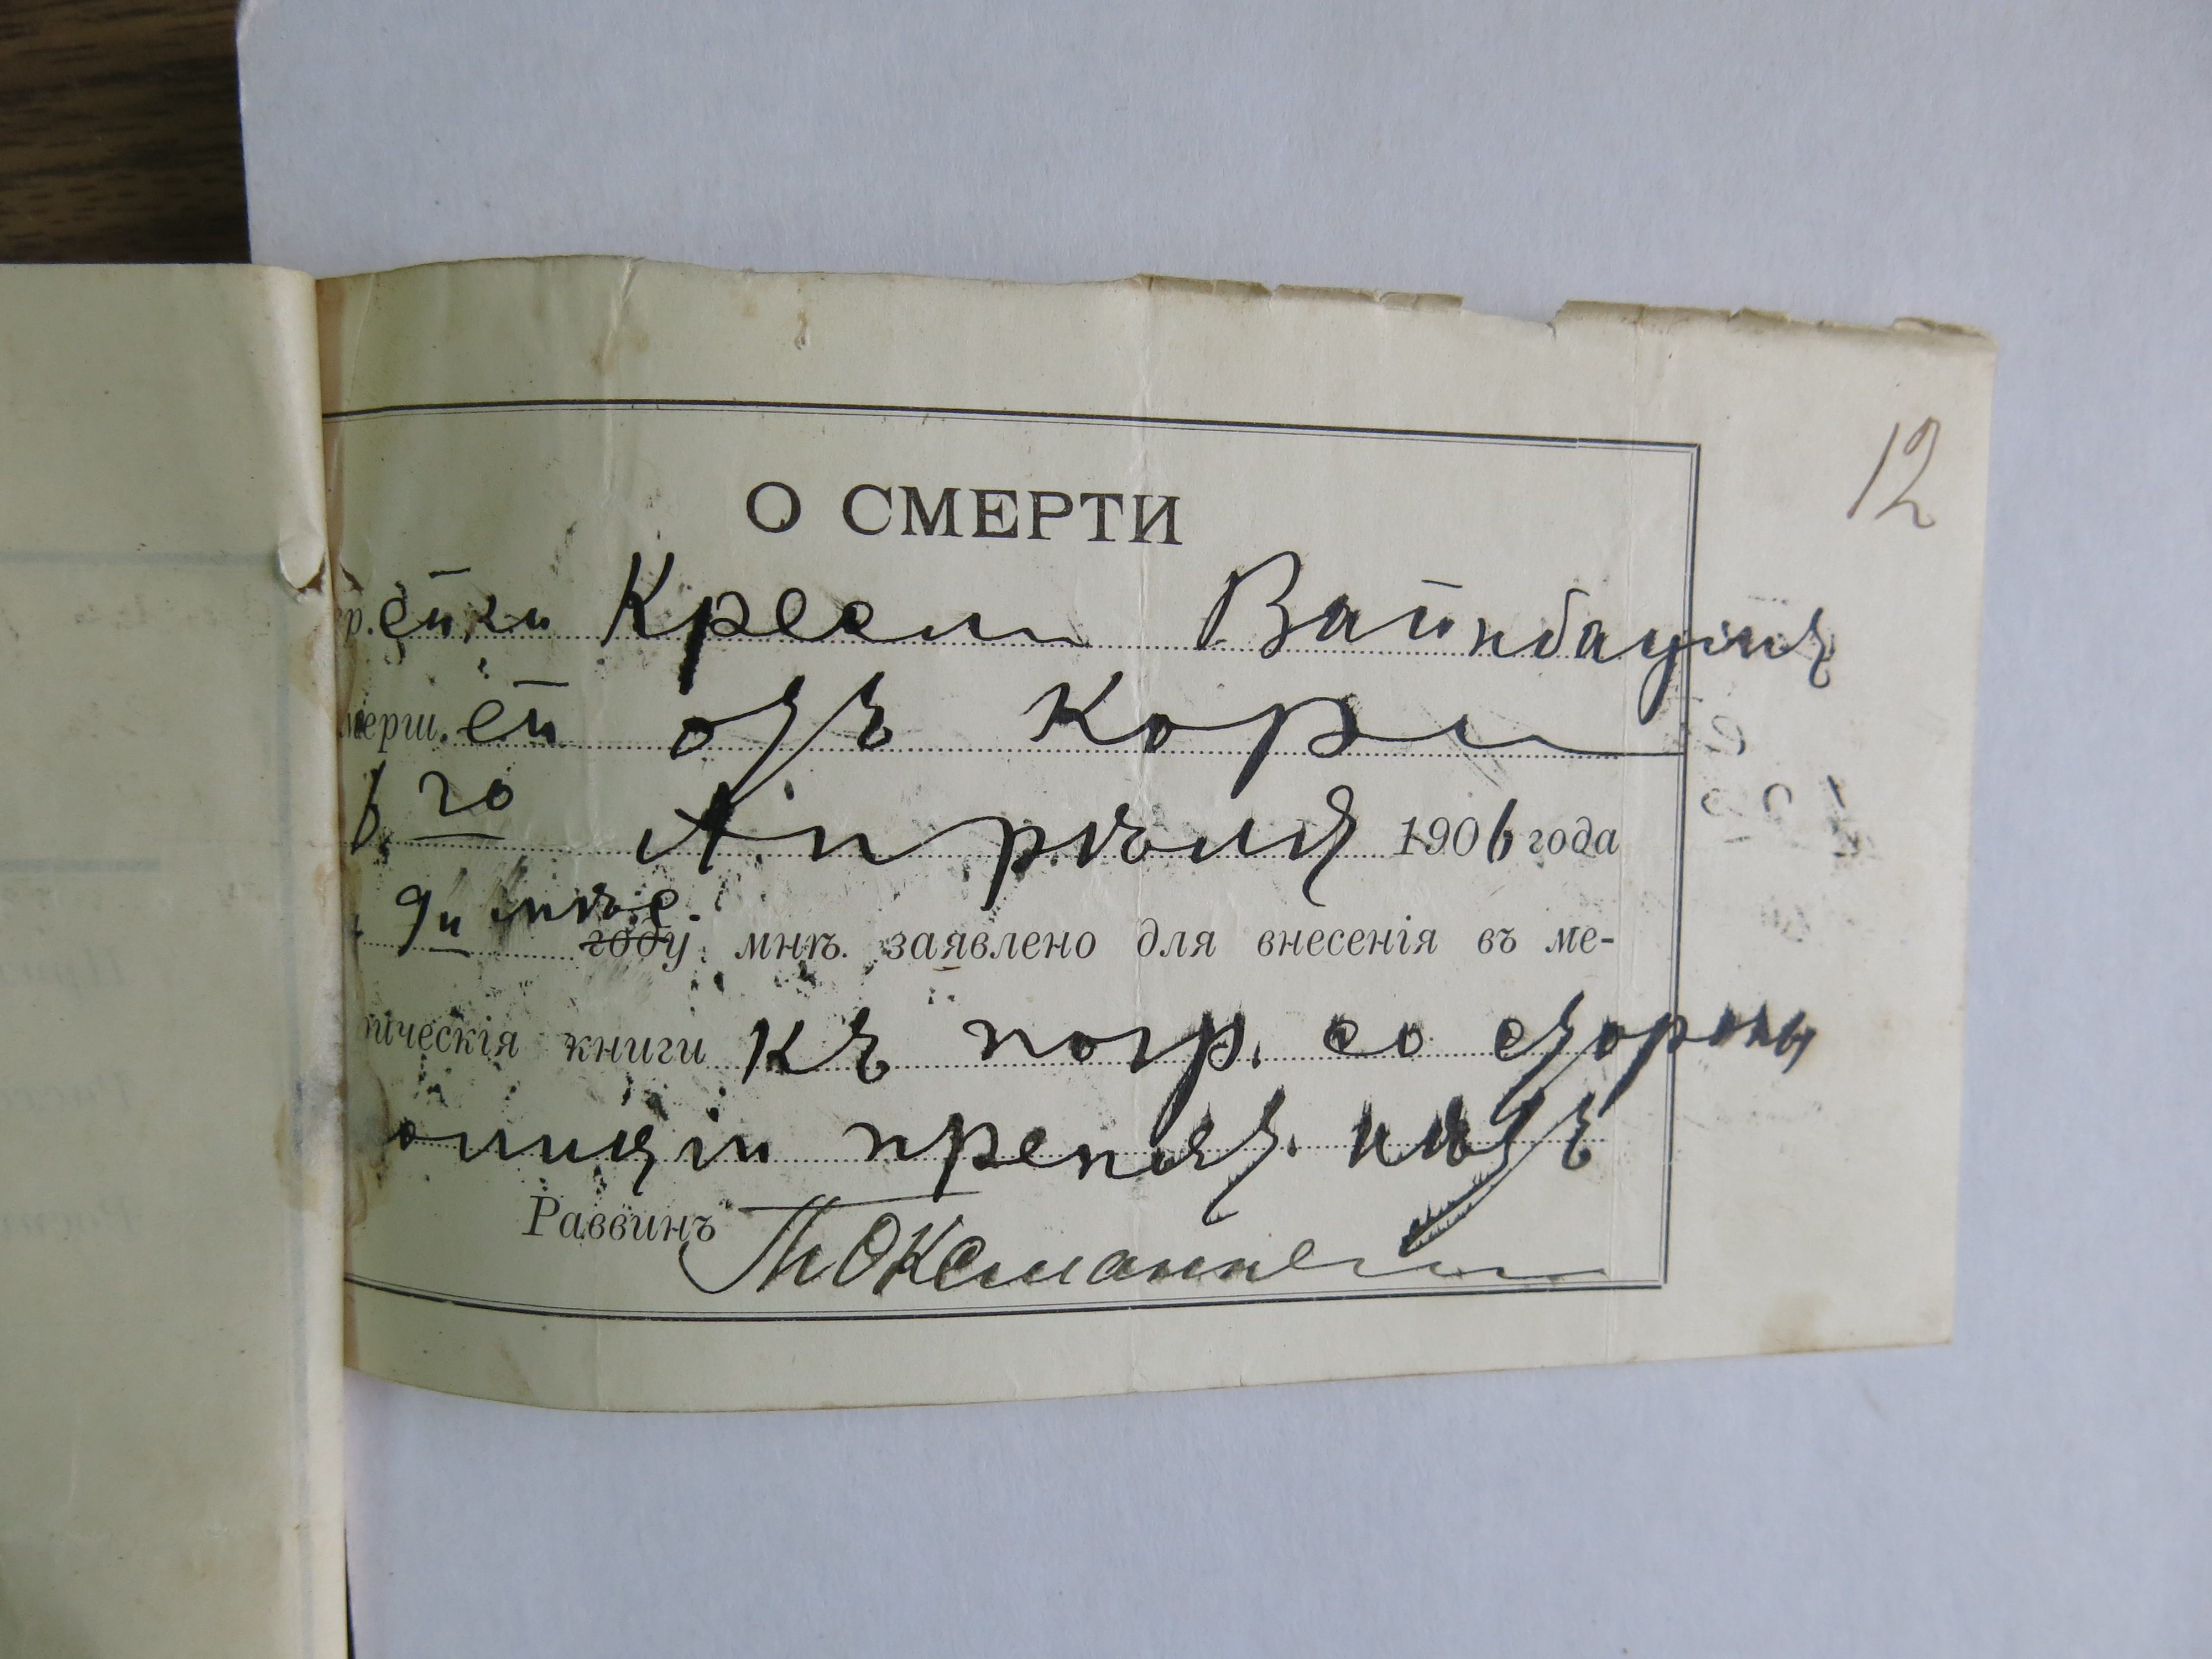 12
О СМЕРТИ
р. ейки Кресли Вайнбаумъ
мерш. ей отъ кори
20 Апрѣля 1906 года
9и
году мнѣ заявлено для внесенія въ ме-
рическія книги къ погр. со стороны
олиціи препят. нѣтъ
Раввинъ